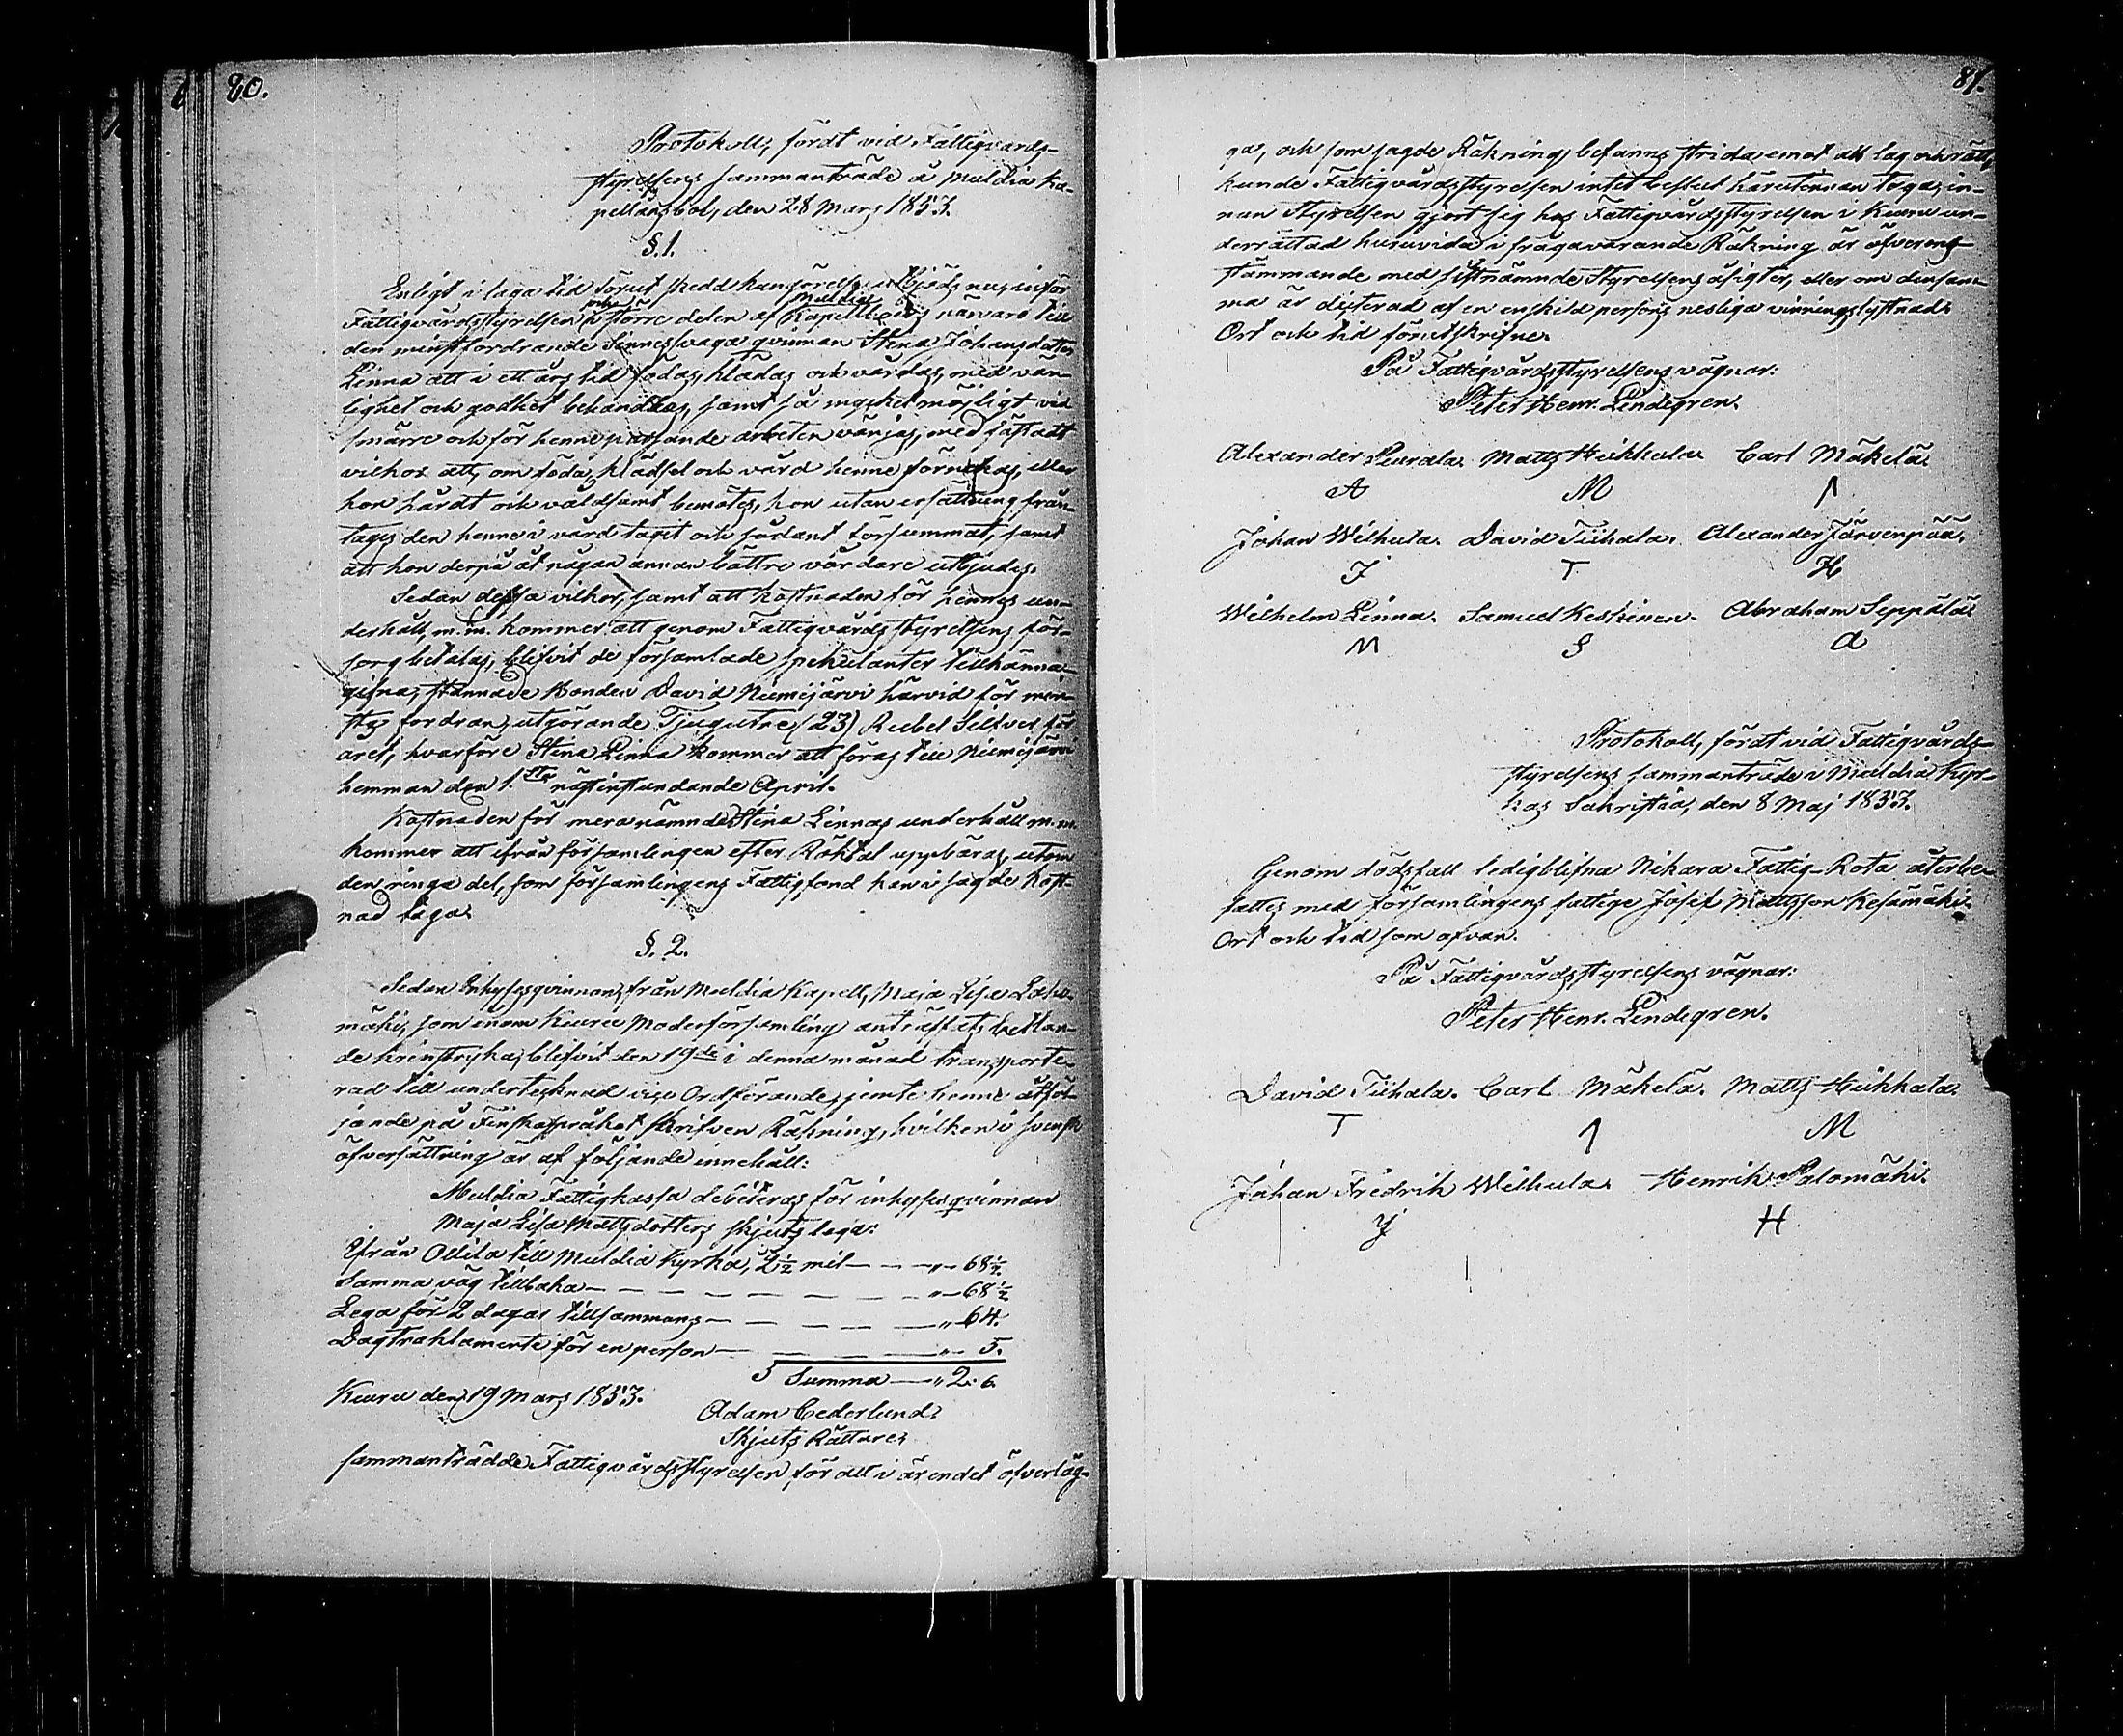 80.
Protokoll, fördt vid Fattigvårds-
styrelsens sammanträde å Muldia Ka-
pellansbol, den 28 Mars 1853.
§.1.
Enligt i laga tid förut skedd kungörelse utbjöds nu, inför
Fattigvårdsstyrelsen och större delen af Muldia Kapellboers närvaro till
den minstfordrande Sinnessvaga qvinnan Stina Johansdotter
Linna att i ett års tid födas, klädas och vårdas, med vän-
lighet och godhet behandlas, samt så mycket möjligt vid
smärre och för henne passande arbeten vänjas, med fästadt
vilkor att, om föda, klädsel och vård henne förnekas, eller
hon hårdt och våldsamt bemötes, hon utan ersättning från-
tages den henne i vård tagit och sådant försummat, samt
att hon derpå åt någon annan bättre vårdare utbjudes.
Sedan dessa vilkor, samt att kostnaden för hennes un-
derhåll, m.m. kommer att genom Fattigvårdsstyrelsens för-
sorg betalas, blifvit de församlade spekulanter tillkänna-
gifna, stannade Bonden David Niemijärvi härvid för min-
sta fordran, utgörande Tjugutre (23) Rubel Silfver för
året, hvarföre Stina Linna kommer att föras till Niemijärvi
hemman den 1.sta nästinstundande April.
Kostnaden för meranämnda Stina Linnas underhåll m.m.
kommer att ifrån församlingen efter Röktal uppbäras, utom
den ringa del, som församlingens Fattigfond kan i sagde kost-
nad taga.
§. 2.
Sedan Inhysesqvinnan, från Muldia Kapell, Maja Lisa
mäki, som inom Keuru Moderförsamling anträffats bettlan-
de kringstryka, blifvit den 19de i denna månad transporte-
rad till undertecknad vice Ordförande, jemte henne åtföl-
jande på Finska språket skrifven Räkning, hvilken i svensk
öfversättning är af följande innehåll:
Muldia Fattigkassa debiteras för inhysesqvinnan
Maja Lisa Mattsdotters skjutslega:
Ifrån Ollila till Muldia Kyrka, 2½ mil — — — „ — 68½.
Samma väg tillbaka — — — — — — — „ — 68½
Lega för 2 dagar tillsammans — — — — „ 64.
Dagtraktamente för en person — — — — „ — 5.
Summa — „ 2. 6.
Keuru den 19 Mars 1853.
Adam Cederlund,
Skjuts Rättare,
sammanträdde Fattigvårdsstyrelsen för att i ärendet öfverläg-
81.
ga, och som sagde Räkning befanns strida emot all lag och rätt,
kunde Fattigvårdsstyrelsen intet beslut härutinnan taga, in-
nan Styrelsen gjort sig hos Fattigvårdsstyrelsen i Keuru un-
derrättad huruvida i frågavarande Räkning är öfverens-
stämmande med sistnämnde Styrelsens åsigter, eller om densam-
ma är dicterad af en enskild persons nesliga vinningslystnad.
Ort och tid förutskrifne.
På Fattigvårdsstyrelsens vägnar:
Peter Henr. Lindegren.
Alexander Peurala. Matts Huhkala. Carl Mäkelä.
A M
Johan Wilhula. David Tiihala. Alexander Järvenpää.
J T H
Wilhelm Linna. Samuel Keskinen. Abraham Seppälä.
M S A
Protokoll, fördt vid Fattigvårds-
styrelsens sammanträde i Muldia Kyr-
kas Sakristia, den 8 Maj 1853.
Genom dödsfall ledigblifna Nikara Fattig-Rota återbe-
sattes med församlingens fattige Josef Mattsson Kesämäki.
Ort och tid som ofvan.
På Fattigvårdsstyrelsens vägnar:
Peter Henr. Lindegren.
David Tiihala. Carl Mäkelä. Matts Huhkala.
T M
Johan Fredrik Wilhula. Henrik Palomäki.
J H